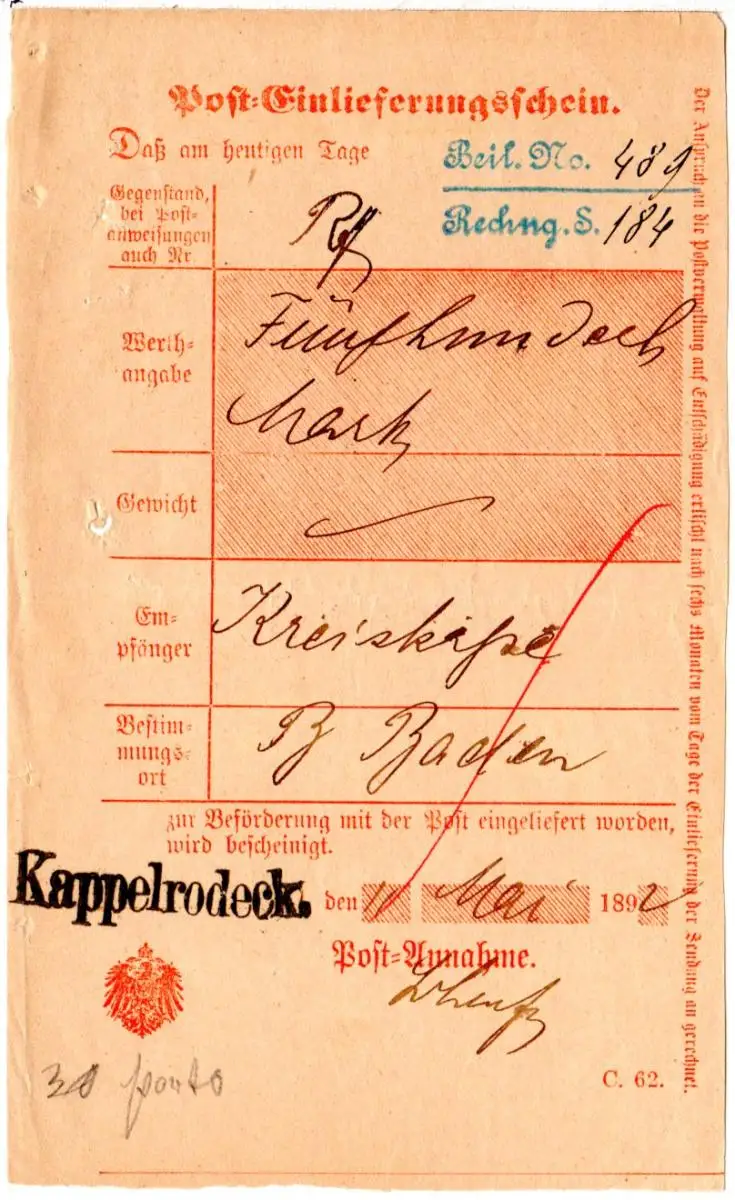 Post-Einlieferungsschein.
Daß am heutigen Tage
Beil. No. 489
Rechng. S. 184
Gegenstand,
bei Post-
anweisungen
auch Nr.
Werth-
angabe
Fünfhundert
Mark
Gewicht
Em-
pfänger
Kreiskasse
Bestim-
mungs-
ort
B Baden
zur Beförderung mit der Post eingeliefert worden,
wird bescheinigt.
Kappelrodeck. den 11 Mai 1892
Post-Annahme.
30 porto
C. 62.
Der Anspruch an die Postverwaltung auf Entschädigung erlischt nach sechs Monaten vom Tage der Einlieferung der Sendung an gerechnet.